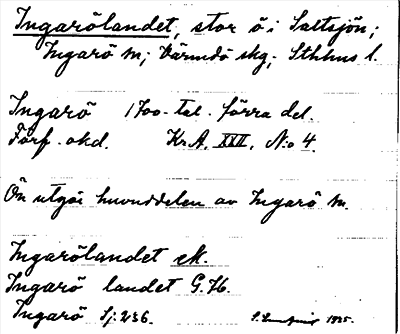 Ingarölandet, stor ö i Saltsjön;
Ingarö sn; Värmdö skg; Sthlms l.
Ingarö 1700-tal. förra del.
Förf. okd. Kr.A. XXII, N:o 4.
Ön utgör huvuddelen av Ingarö sn.
Ingarölandet ek.
Ingarö landet G.
Ingarö Sj: 236.
1935.